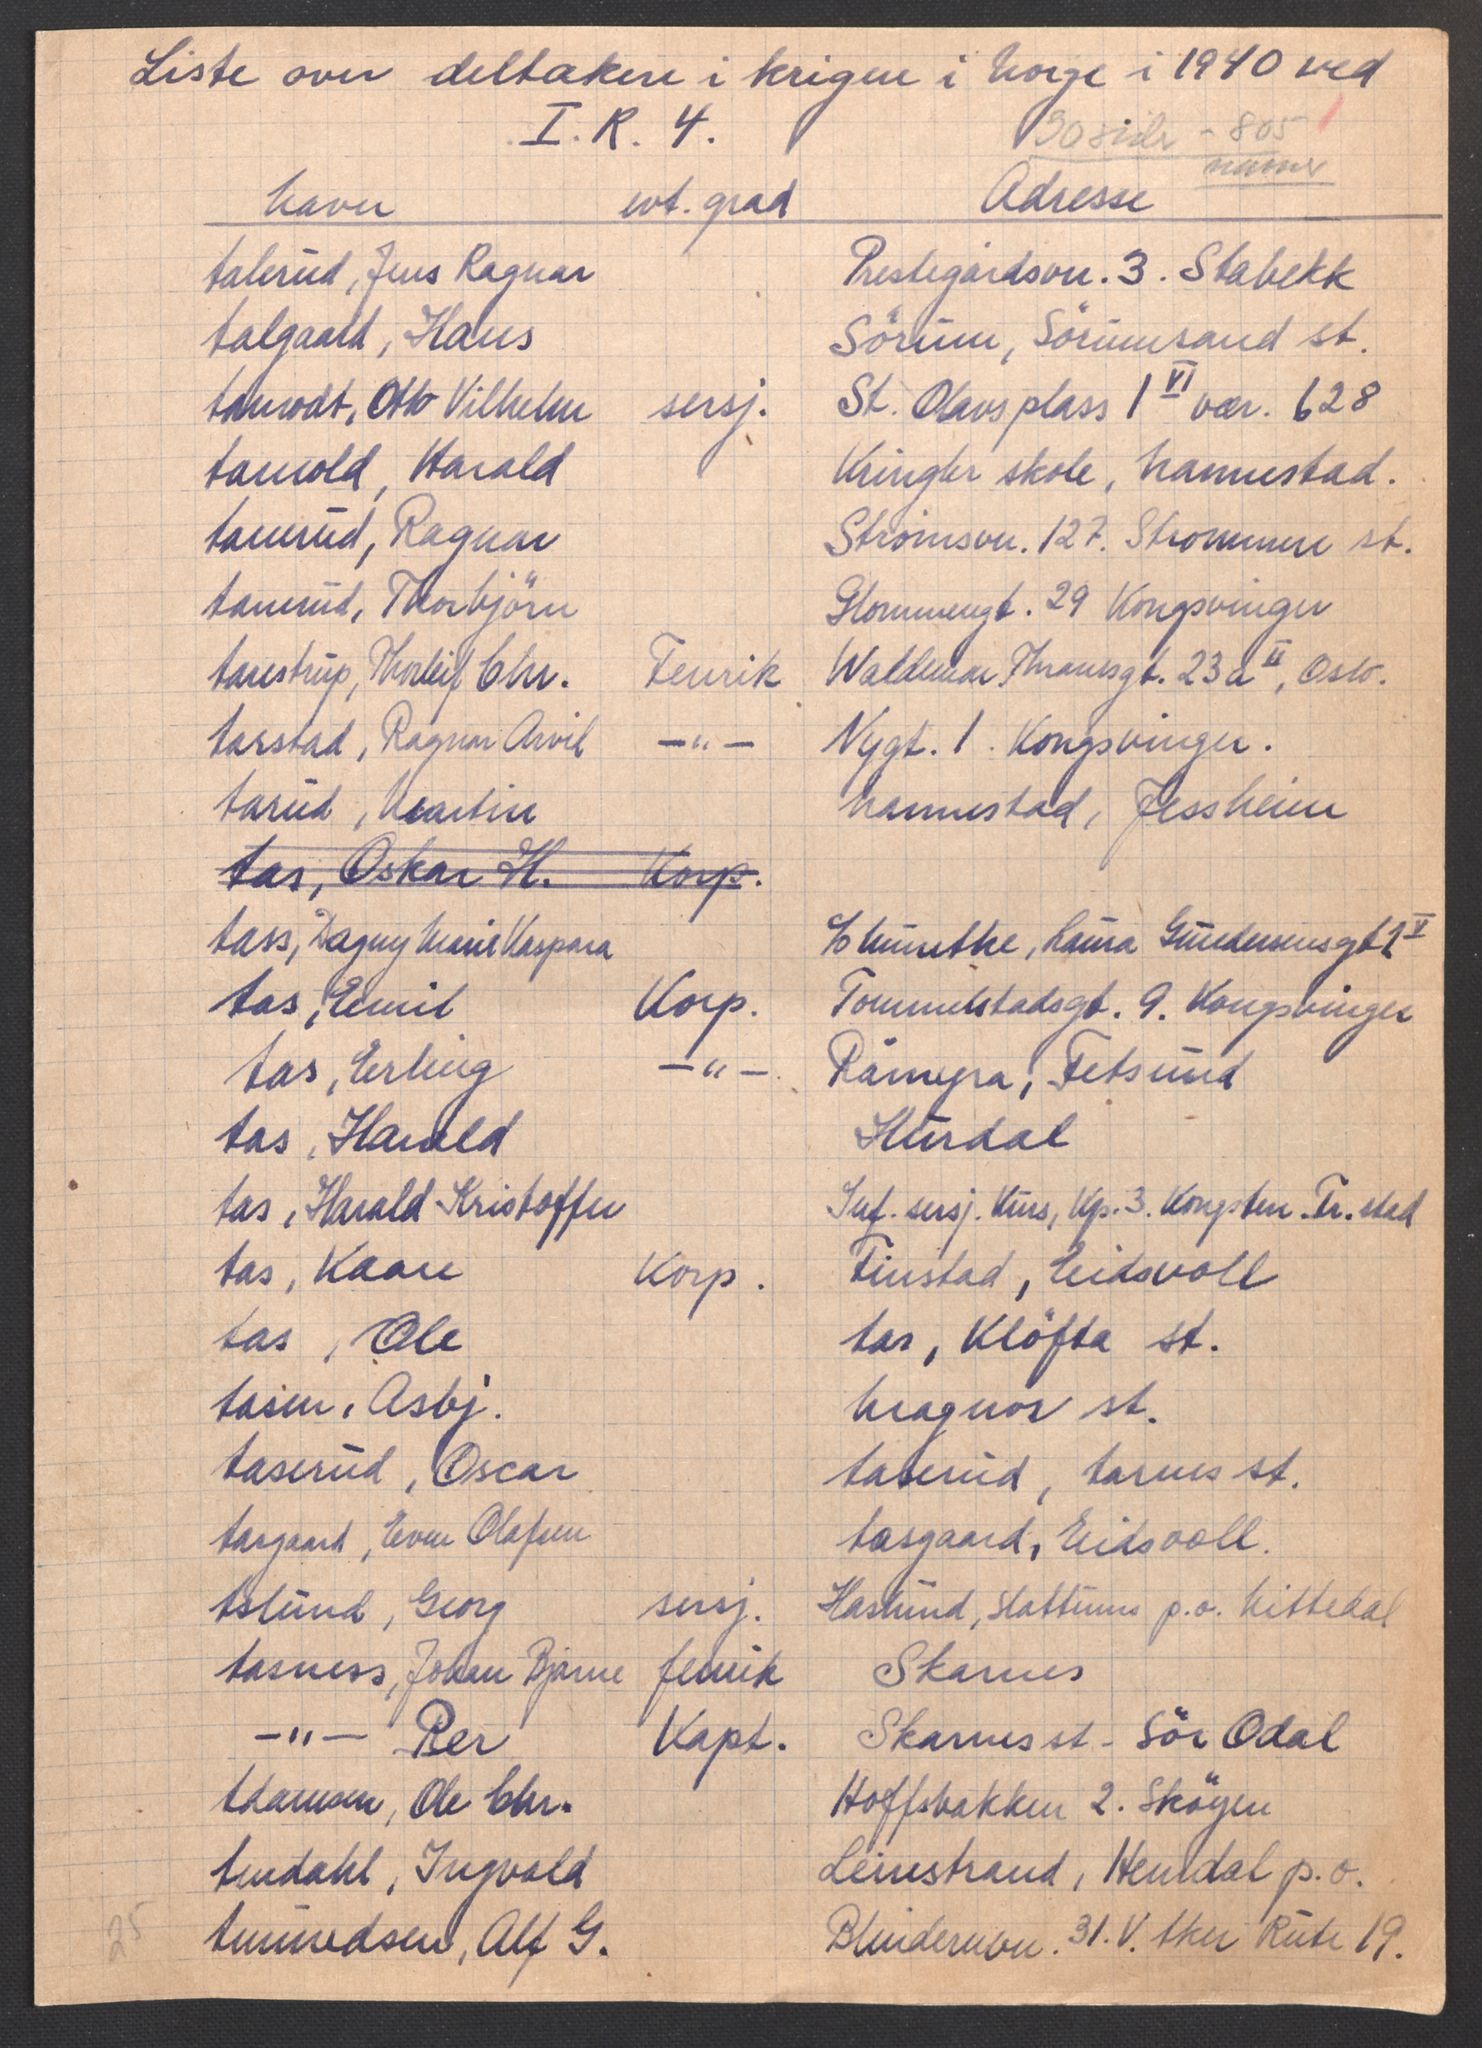 Liste over deltakere i krigen i Norge i 1940 ved
I.R. 4.
30 sider - 805
navner
Navn evt. grad Adresse
Aalerud, Jens Ragnar Prestegårdsvn. 3. Stabekk
Aalgaard, Hans Sörum, Sörumsand st.
Aamodt, Otto Vilhelm sersj. St. Olavsplass 1 VI vær. 628
Aamold, Harald Kringler skole, Nannestad.
Aanerud, Ragnar Strömsvn. 127. Strömmen st.
Aanerud, Thorbjörn Glommengt. 29 Kongsvinger
Aanestrup, Thorleif Chr. Fenrik Waldemar Thranesgt. 23a II, Oslo.
Aarstad, Ragnar Arvid —"— Nygt. 1. Kongsvinger.
Aarud, Martin Nannestad, Jessheim
Aas, Oskar H. Korp.
Aass, Dagny Marie Kaspara c/o Munthe, Laura Gundersensgt 1 V
Aas, Emil Korp. Tommelstadsgt. 9. Kongsvinger
Aas, Erling —"— Rånegra, Fetsund
Aas, Harald Hurdal
Aas, Harald Kristoffer Inf. sersj. Kurs, Kp. 3. Kongsten. Fr.stad
Aas, Kaare Korp. Finstad, Eidsvoll
Aas, Ole Aas, Klöfta st.
Aasen, Asbj. Magnor st.
Aaserud, Oscar Aaserud, Aarnes st.
Aasgaard, Even Olafsen Aasgaard, Eidsvoll.
Aslund, Georg sersj. Haslund, Slattums p.o. Nittedal
Aasness, Johan Bjarne fenrik Skarnes
—"— Per Kapt. Skarnes st - Sör Odal
Adamsen, Ole Chr. Hoffsbakken 2. Sköyen
Amdahl, Ingvald Leinstrand, Heimdal p.o.
Amundsen, Alf G. Blindernvn. 31. V. Aker Rute 19.
25